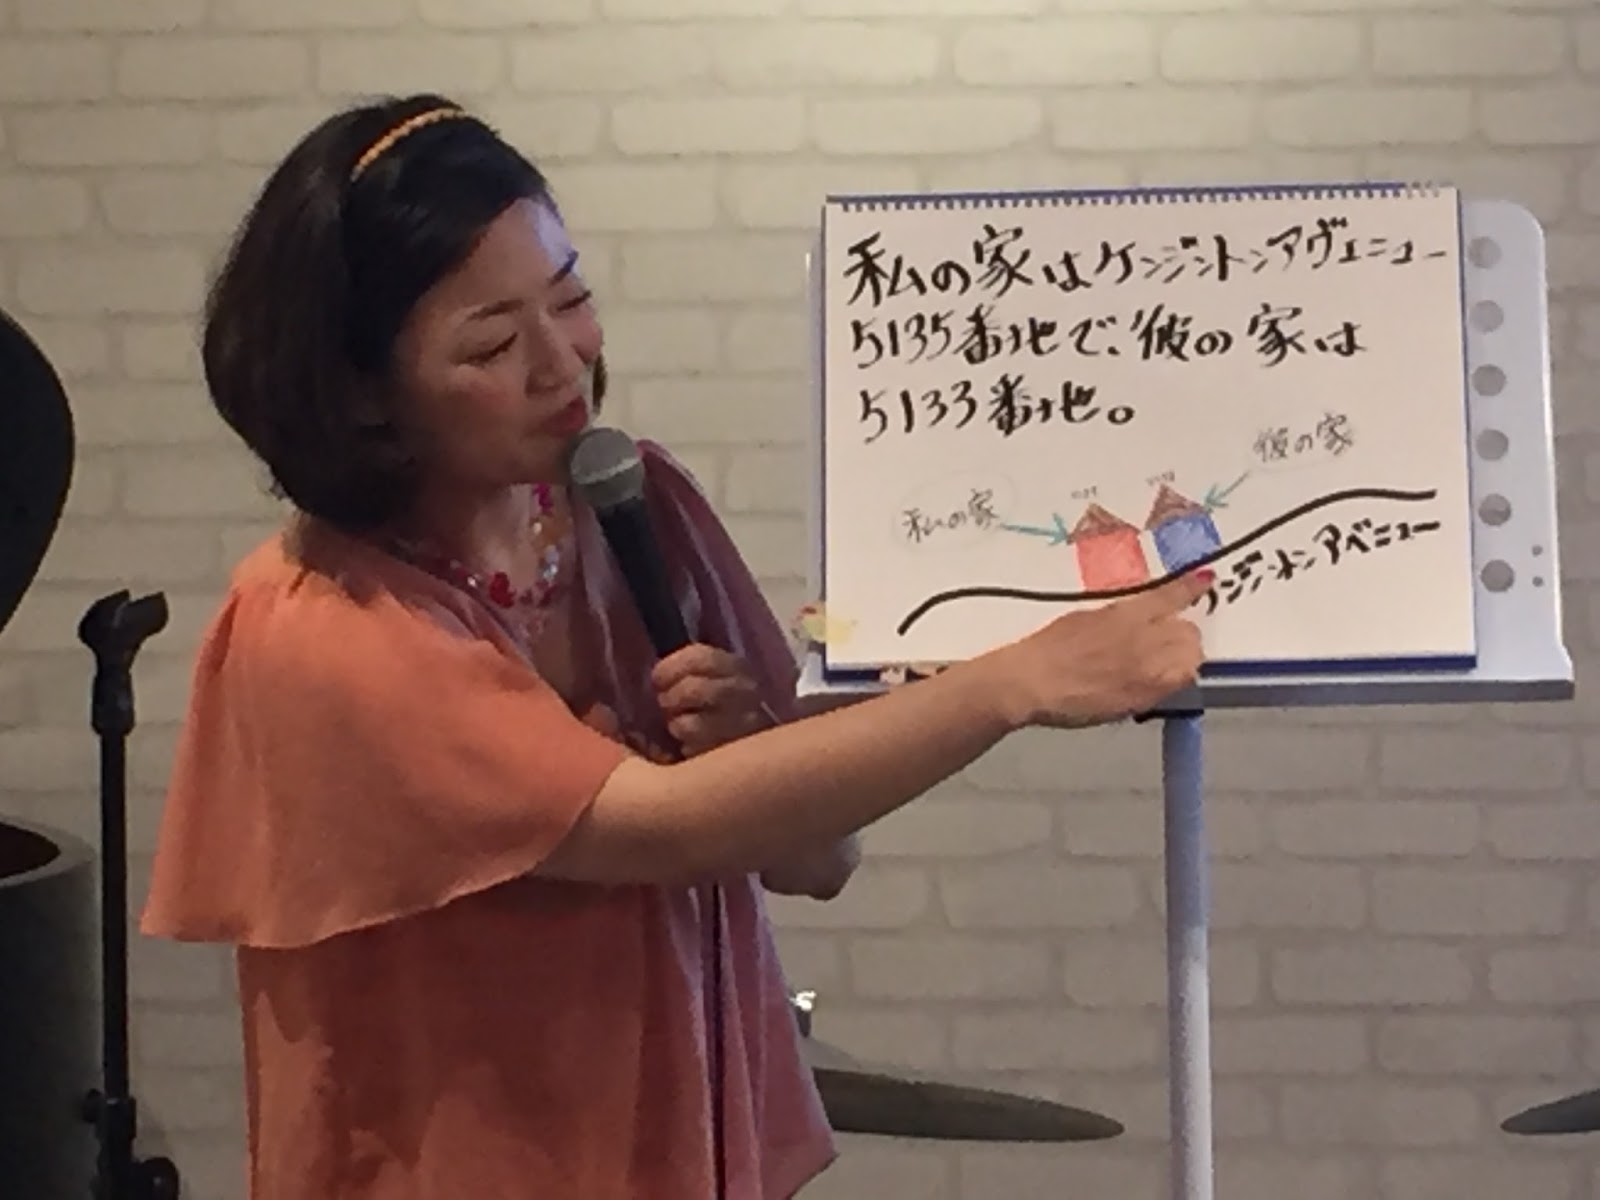 私の家はケンジントンアヴェニュー
5135番地で、彼の家は
5133番地。
彼の家
私の家
ケンジントンアベニュー